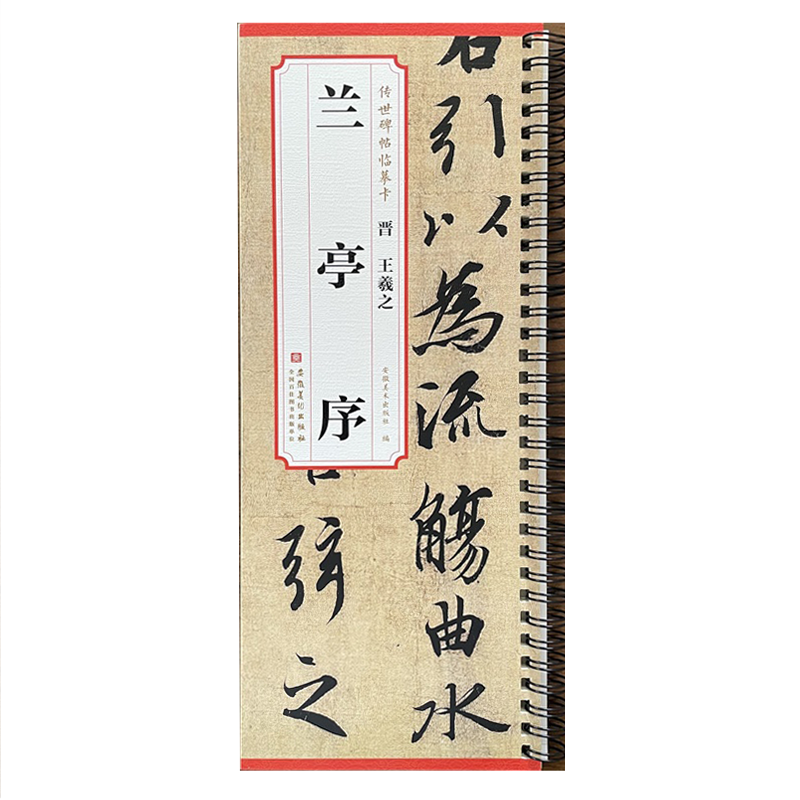 右引以為流觴曲水
传世碑帖临摹卡
晋 王羲之
安徽美术出版社 编
兰亭序
安徽美术出版社
全国百佳图书出版单位
弦之